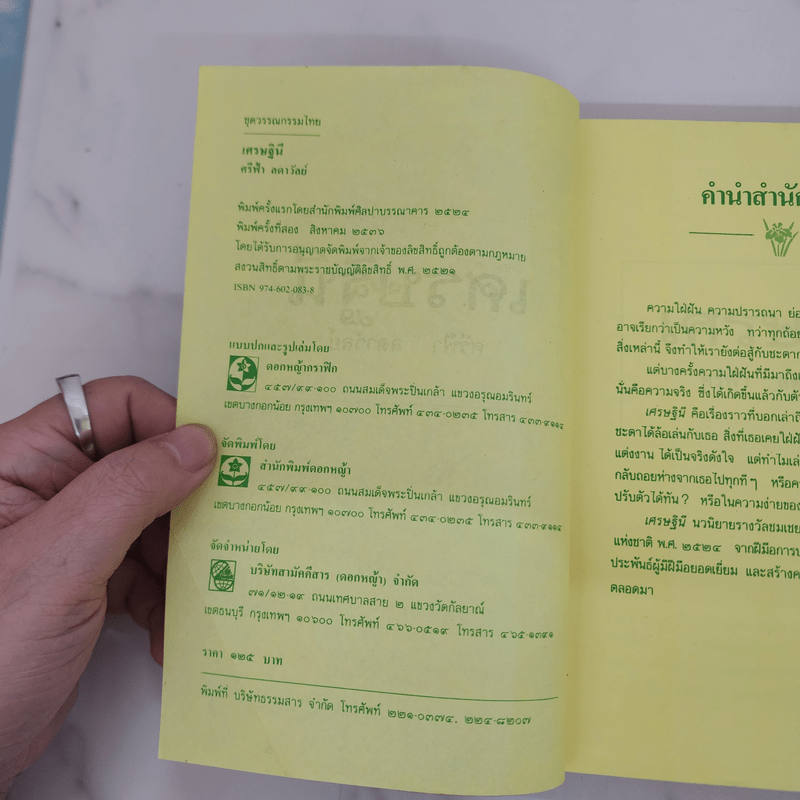 ชุดวรรณกรรมไทย
เศรษฐินี
ศรีฟ้า ลดาวัลย์
พิมพ์ครั้งแรกโดยสำนักพิมพ์ศิลปาบรรณาคาร ๒๕๒๔
พิมพ์ครั้งที่สอง สิงหาคม ๒๕๓๖
โดยได้รับการอนุญาตจัดพิมพ์จากเจ้าของลิขสิทธิ์ถูกต้องตามกฎหมาย
สงวนสิทธิ์ตามพระราชบัญญัติลิขสิทธิ์ พ.ศ. ๒๕๒๑
ISBN 974-602-083-8
แบบปกและรูปเล่มโดย
ดอกหญ้ากราฟิก
๔๕๗/๙๙-๑๐๐ ถนนสมเด็จพระปิ่นเกล้า แขวงอรุณอมรินทร์
เขตบางกอกน้อย กรุงเทพฯ ๑๐๗๐๐ โทรศัพท์ ๔๓๔-๐๒๓๕ โทรสาร ๔๓๓-๙๑๑๔
จัดพิมพ์โดย
สำนักพิมพ์ดอกหญ้า
๔๕๗/๙๙-๑๐๐ ถนนสมเด็จพระปิ่นเกล้า แขวงอรุณอมรินทร์
เขตบางกอกน้อย กรุงเทพฯ ๑๐๗๐๐ โทรศัพท์ ๔๓๔-๐๒๓๕ โทรสาร ๔๓๓-๙๑๑๔
จัดจำหน่ายโดย
บริษัทสามัคคีสาร (ดอกหญ้า) จำกัด
๗๑/๑๒-๑๙ ถนนเทศบาลสาย ๒ แขวงวัดกัลยาณ์
เขตธนบุรี กรุงเทพฯ ๑๐๖๐๐ โทรศัพท์ ๔๖๖-๐๕๑๙ โทรสาร ๔๖๕-๑๓๙๑
ราคา ๑๒๕ บาท
พิมพ์ที่ บริษัทธรรมสาร จำกัด โทรศัพท์ ๒๒๑-๐๓๗๔, ๒๒๔-๘๒๐๗
คำนำสำนัก
ความใฝ่ฝัน ความปรารถนา ย่อ
อาจเรียกว่าเป็นความหวัง ทว่าทุกถ้อย
สิ่งเหล่านี้ จึงทำให้เรายังต่อสู้กับชะตาก
แต่บางครั้งความใฝ่ฝันที่มีมาถึง
นั่นคือความจริง ซึ่งได้เกิดขึ้นแล้วกับตัว
เศรษฐินี คือเรื่องราวที่บอกเล่าถึ
ชะตาได้ล้อเล่นกับเธอ สิ่งที่เธอเคยใฝ่ฝั
แต่งงาน ได้เป็นจริงดังใจ แต่ทำไมเล่
กลับถอยห่างจากเธอไปทุกทีๆ หรือคว
ปรับตัวได้ทัน? หรือในความง่ายของ
เศรษฐินี นวนิยายรางวัลชมเชย
แห่งชาติ พ.ศ. ๒๕๒๔ จากฝีมือการป
ประพันธ์ผู้มีฝีมือยอดเยี่ยม และสร้างค
ตลอดมา